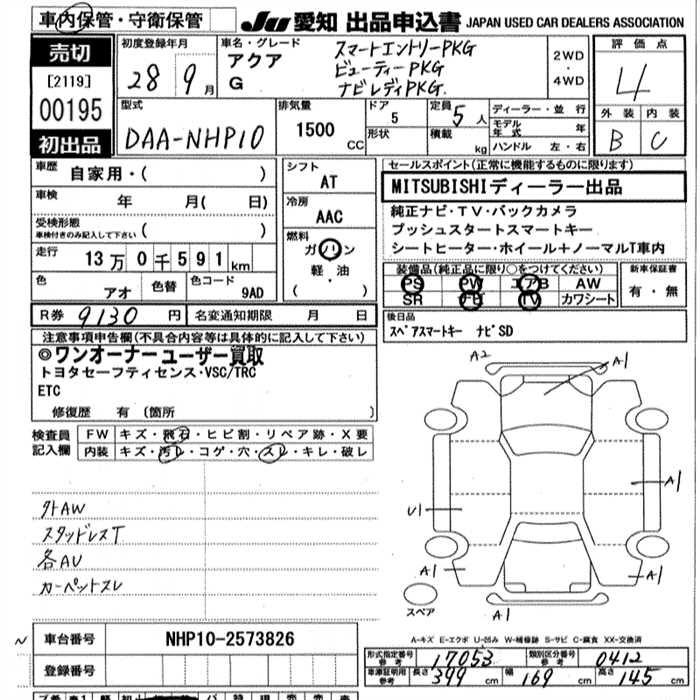 車内保管・守衛保管
JU 愛知 出品申込書 JAPAN USED CAR DEALERS ASSOCIATION
売切
[2119]
00195
初出品
初度登録年月
28 9月
車名・グレード
アクア
G
スマートエントリーPKG
ビューティーPKG
ナビレディPKG.
2WD
・
4WD
評価点
4
外装 内装
B C
型式
DAA-NHP10
排気量
1500 CC
ドア
5
形状
定員
5人
積載
kg
ディーラー・並行
モデル年式 年
ハンドル 左・右
車歴
自家用・( )
車検
年 月( 日)
受検形態
車検付きのみ記入して下さい ( )
走行
13万0千591km
色
アオ
色替
色コード
9AD
シフト
AT
冷房
AAC
燃料
ガソリン
軽・油
( )
セールスポイント(正常に機能するものに限ります)
MITSUBISHIディーラー出品
純正ナビ・TV・バックカメラ
プッシュスタートスマートキー
シートヒーター・ホイール+ノーマルT車内
装備品(純正品に限り○をつけてください)
PS PW エアB AW
SR ナビ TV カワシート
新車保証書
有・無
R券 9130円
名変通知期限 月 日
後日品
スペアスマートキー ナビSD
注意事項申告欄(不具合内容等は具体的に記入して下さい)
◎ワンオーナーユーザー買取
トヨタセーフティセンス・VSC/TRC
ETC
修復歴 有 (箇所 )
検査員記入欄
FW キズ・飛石・ヒビ割・リペア跡・X要
内装 キズ・汚レ・コゲ・穴・スレ・キレ・破レ
外AW
スタッドレスT
各AU
カーペットスレ
A2
A1
A1
U1
A1
A1
A1
スペア
A-キズ E-エクボ U-凹み W-補修跡 S-サビ C-腐食 XX-交換済
車台番号
NHP10-2573826
登録番号
形式指定番号 参考
17053
類別区分番号 参考
0412
車庫証明用 参考
長さ 399 cm
幅 169 cm
高さ 145 cm